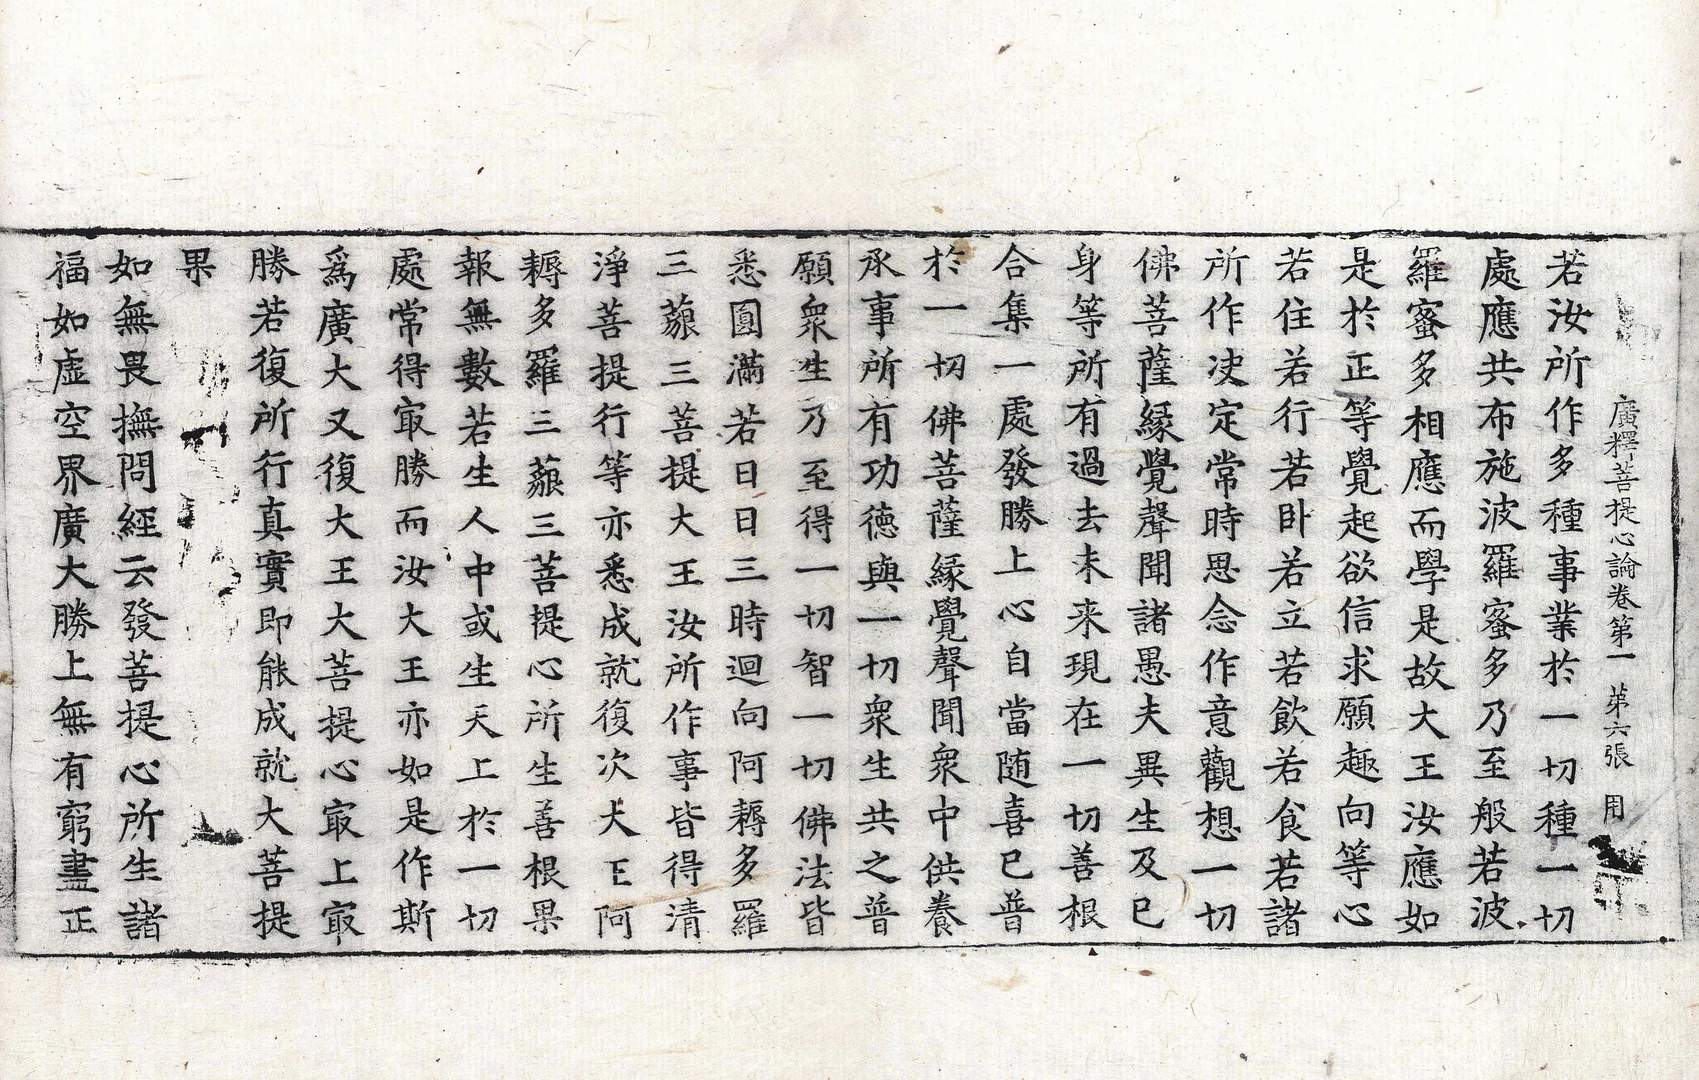 廣釋菩提心論卷第一 第六張 用
若汝所作多種事業於一切種一切
處應共布施波羅蜜多乃至般若波
羅蜜多相應而學是故大王汝應如
是於正等覺起欲信求願趣向等心
若住若行若卧若立若飲若食若諸
所作決定常時思念作意觀想一切
佛菩薩縁覺聲聞諸愚夫異生及已
身等所有過去未来現在一切善根
合集一處發勝上心自當随喜已普
於一切佛菩薩縁覺聲聞衆中供養
承事所有功德與一切衆生共之普
願衆生乃至得一切智一切佛法皆
悉圓滿若日日三時迴向阿耨多羅
三藐三菩提大王汝所作事皆得清
淨菩提行等亦悉成就復次大王阿
耨多羅三藐三菩提心所生善根果
報無數若生人中或生天上於一切
處常得㝡勝而汝大王亦如是作斯
爲廣大又復大王大菩提心㝡上㝡
勝若復所行真實即能成就大菩提
果
如無畏撫問經云發菩提心所生諸
福如虚空界廣大勝上無有窮盡正